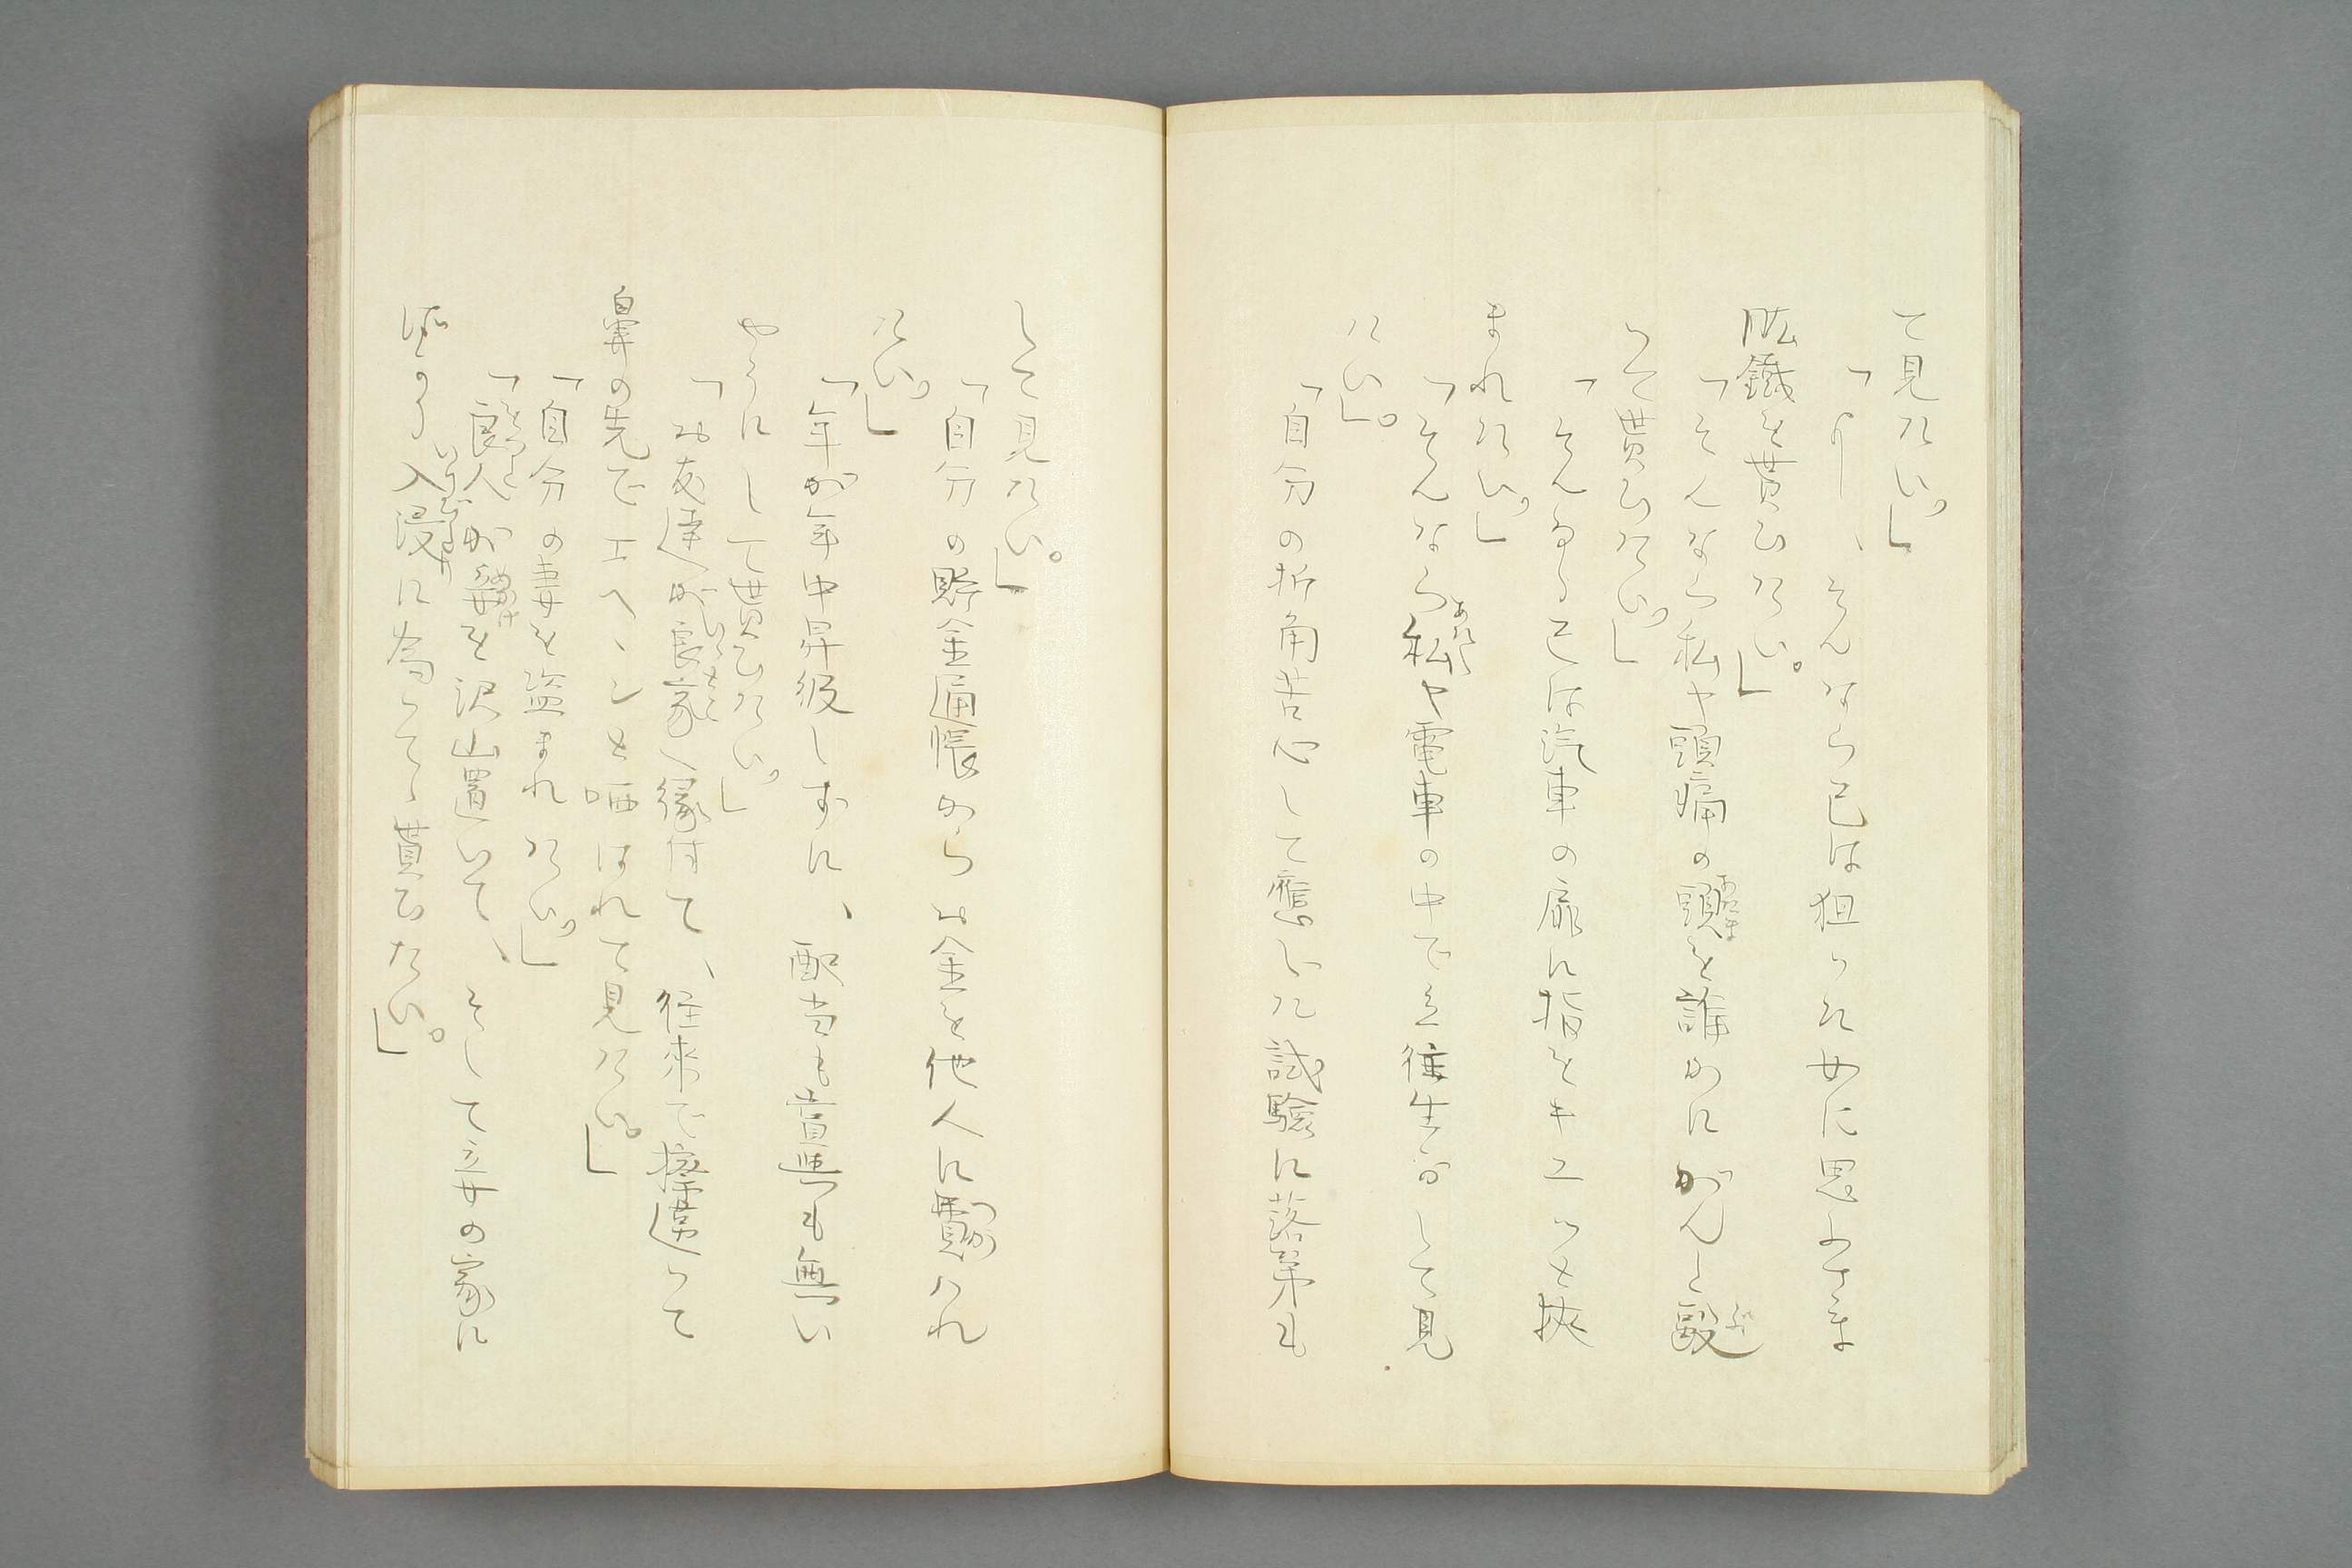 て見たい。」
「よし、そんなら己は狙つた女に思ふさま
肱鐵を貰ひたい。」
「そんなら私や頭痛の頭を誰かにがんと毆
つて貰ひたい。」
「そんなら己は汽車の扉に指をキユツと挾
まれたい。」
「そんなら私や電車の中で立往生がして見
たい」。
「自分の折角苦心して應じた試驗に落第も
して見たい。」
「自分の貯金通帳からお金を他人に費はれ
たい。」
「年が年中昇級しずに、配当も賞與も無い
やうにして貰ひたい。」
「お友達が良家へ縁付て、往来で擦違つて
鼻の先でエヘヽンと哂はれて見たい。」
「自分の妻を盗まれたい。」
「良人が妾を沢山置いて、そして妾の家に
ばかり入浸に為つてゝ貰ひたい。」